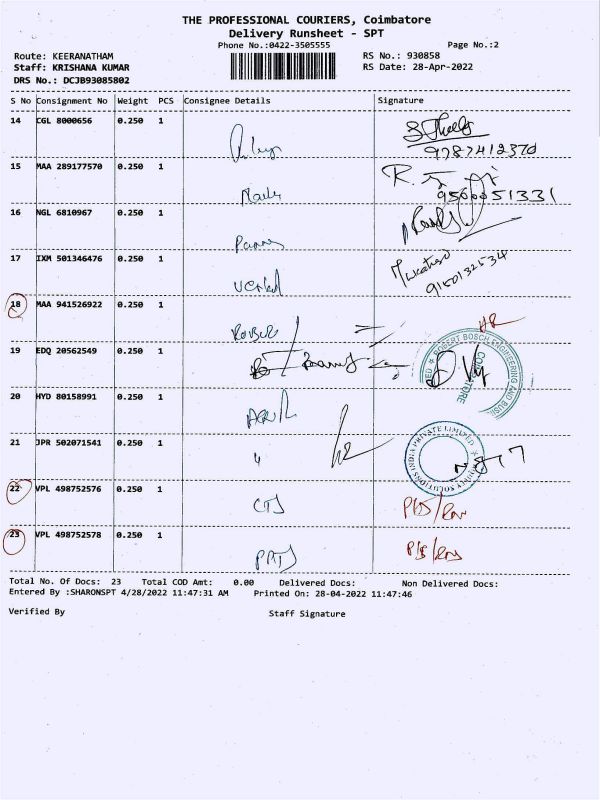 THE PROFESSIONAL COURIERS, Coimbatore
Delivery Runsheet - SPT
Phone No.:0422-3505555 Page No.:2
Route: KEERANATHAM RS No.: 930858
Staff: KRISHANA KUMAR RS Date: 28-Apr-2022
DRS No.: DCJB93085802
S No Consignment No Weight PCS Consignee Details Signature
14 CGL 8000656 0.250 1
9787412370
15 MAA 289177570 0.250 1
9566651331
16 NGL 6810967 0.250 1
17 IXM 501346476 0.250 1
9150132534
18 MAA 941526922 0.250 1
19 EDQ 20562549 0.250 1
ROBERT BOSCH ENGINEERING AND BUSI
COIMBATORE
20 HYD 80158991 0.250 1
21 JPR 502071541 0.250 1
SOLUTIONS INDIA PRIVATE LIMITED
22 VPL 498752576 0.250 1 CTS
23 VPL 498752578 0.250 1
Total No. Of Docs: 23 Total COD Amt: 0.00 Delivered Docs: Non Delivered Docs:
Entered By :SHARONSPT 4/28/2022 11:47:31 AM Printed On: 28-04-2022 11:47:46
Verified By Staff Signature